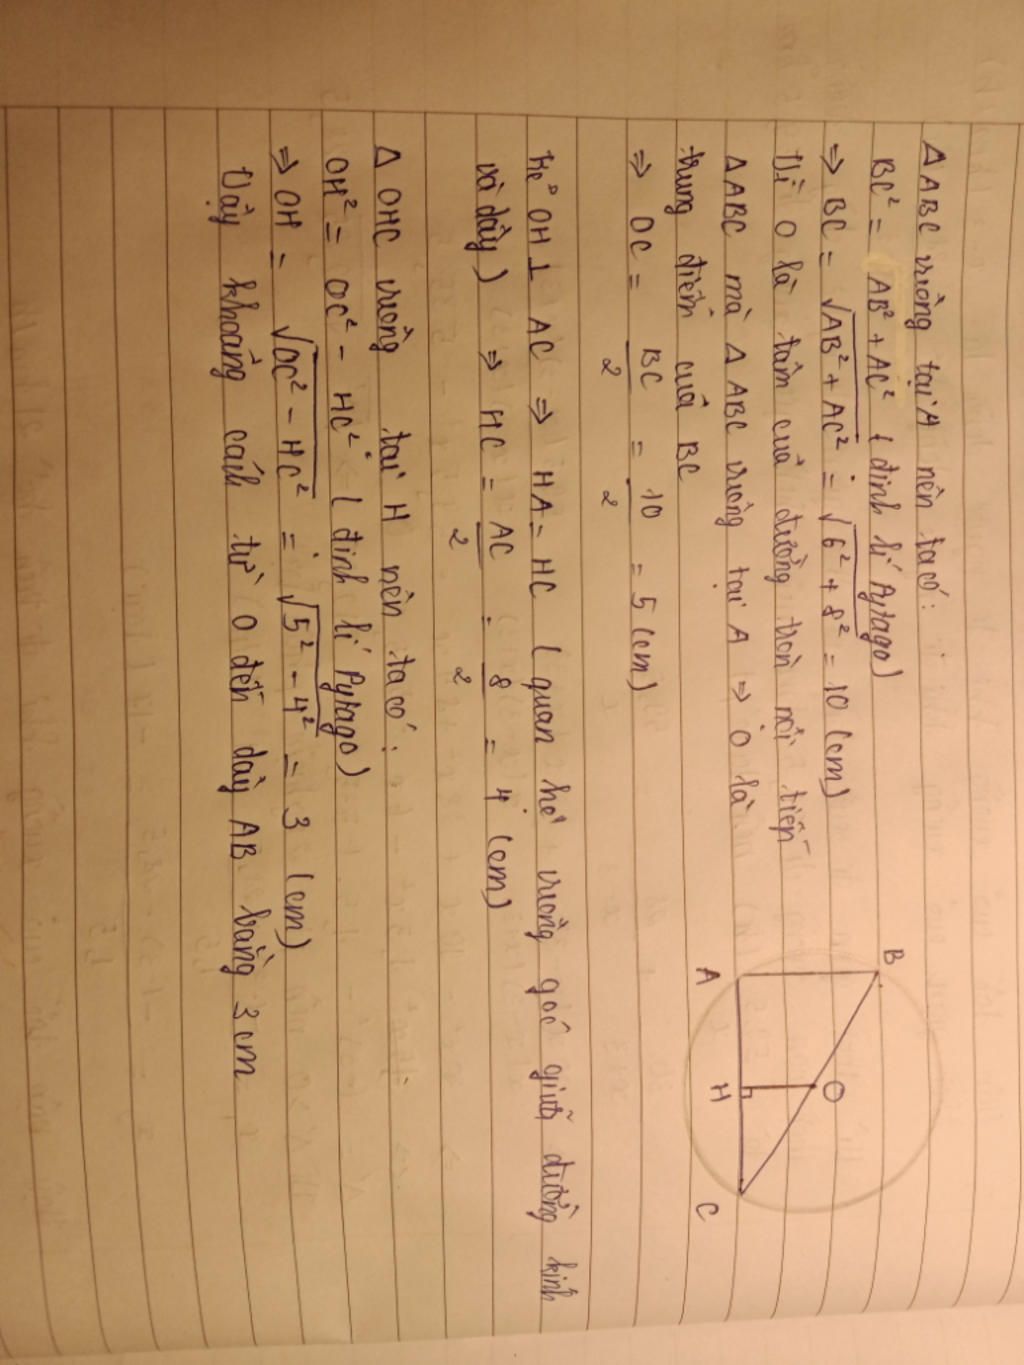 Δ ABC vuông tại A nên ta có:
BC² = AB² + AC² (định lí Pytago)
⇒ BC = √AB² + AC² = √6² + 8² = 10 (cm)
Vì O là tâm của đường tròn nội tiếp
Δ ABC mà Δ ABC vuông tại A ⇒ O là
trung điểm của BC
⇒ OC = BC/2 = 10/2 = 5 (cm)
Kẻ OH ⊥ AC ⇒ HA = HC (quan hệ vuông góc giữa đường kính
và dây) ⇒ HC = AC/2 = 8/2 = 4 (cm)
Δ OHC vuông tại H nên ta có:
OH² = OC² - HC² (định lí Pytago)
⇒ OH = √OC² - HC² = √5² - 4² = 3 (cm)
Vậy khoảng cách từ O đến dây AB bằng 3 cm
B
O
A
H
C